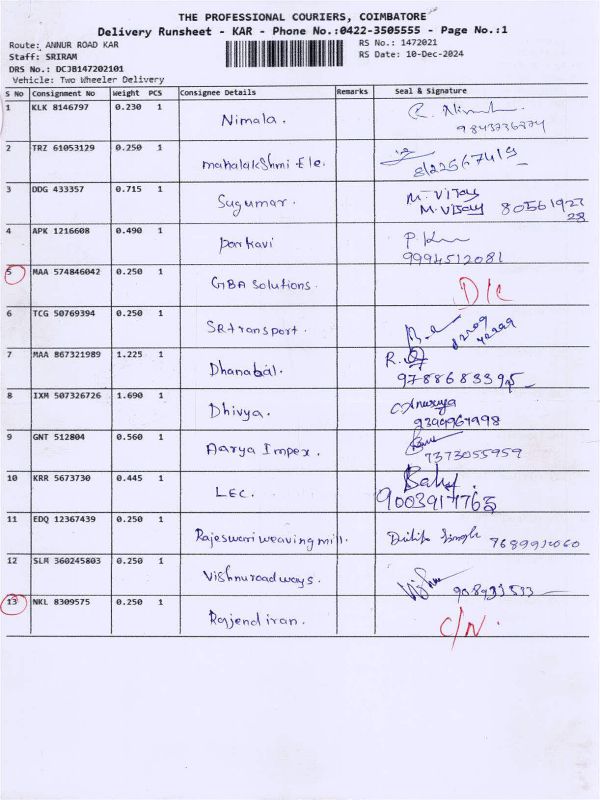 THE PROFESSIONAL COURIERS, COIMBATORE
Delivery Runsheet - KAR - Phone No.:0422-3505555 - Page No.:1
Route: ANNUR ROAD KAR RS No.: 1472021
Staff: SRIRAM RS Date: 10-Dec-2024
DRS No.: DCJB147202101
Vehicle: Two Wheeler Delivery
S No Consignment No Weight PCS Consignee Details Remarks Seal & Signature
1 KLK 8146797 0.230 1 Nimala.
2 TRZ 61053129 0.250 1 mahalakshmi Ele.
3 DDG 433357 0.715 1 Sugumar. M. Vijay
M. Vijay 80561927
28
4 APK 1216608 0.490 1
9994512081
5 MAA 574846042 0.250 1 GBA solutions. D/C
6 TCG 50769394 0.250 1 SR transport.
7 MAA 867321989 1.225 1 Dhanabal.
8 IXM 507326726 1.690 1 Dhivya. Anusuya
9 GNT 512804 0.560 1 Aarya Impex.
7373055959
10 KRR 5673730 0.445 1 LEC.
11 EDQ 12367439 0.250 1 Rajeswari weaving mill. Singh
12 SLM 360245803 0.250 1 Vishnu roadways.
13 NKL 8309575 0.250 1 C/N.